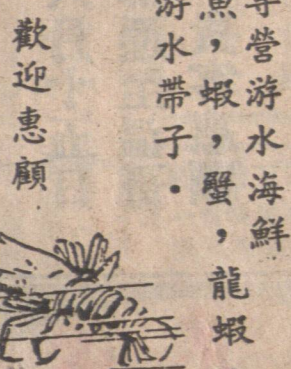 專營游水海鮮
魚，蝦，蟹，龍蝦
游水帶子．
歡迎惠顧